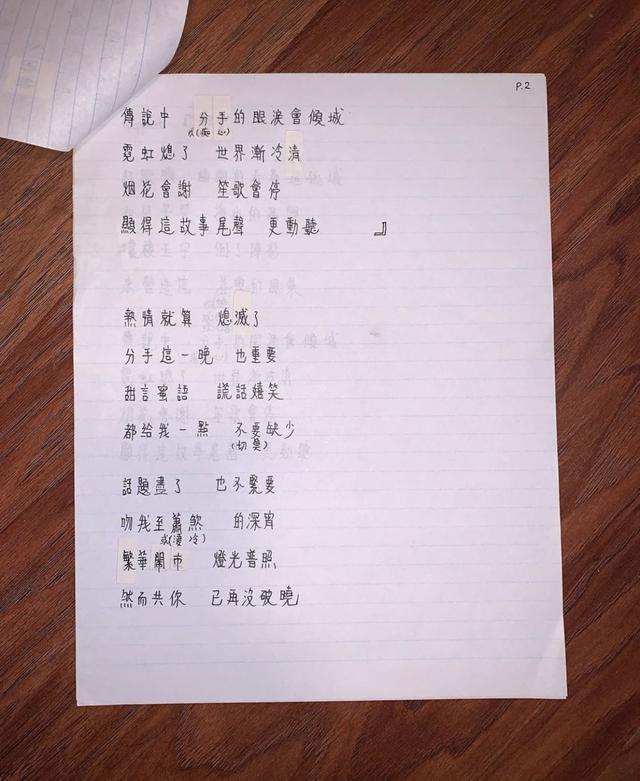 P.2
傳說中 分手的眼淚會傾城
或(痴心)
霓虹熄了 世界漸冷清
烟花會謝 笙歌會停
顯得這故事尾聲 更動聽 』
熱情就算 熄滅了
分手這一晚 也重要
甜言蜜語 謊話嬉笑
都給我一點 不要缺少
(切莫)
話題盡了 也不緊要
吻我至蕭煞 的深宵
或(淒冷)
繁華鬧市 燈光普照
然而共你 已再沒破曉